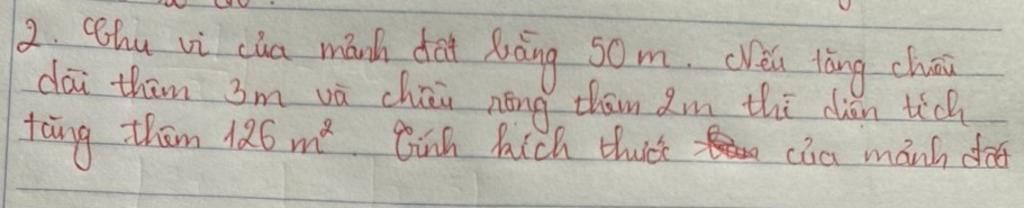 2. Chu vi của mảnh đất bằng 50 m. Nếu tăng chiều
dài thêm 3m và chiều rộng thêm 2m thì diện tích
tăng thêm 126 m². Tính kích thước của mảnh đất